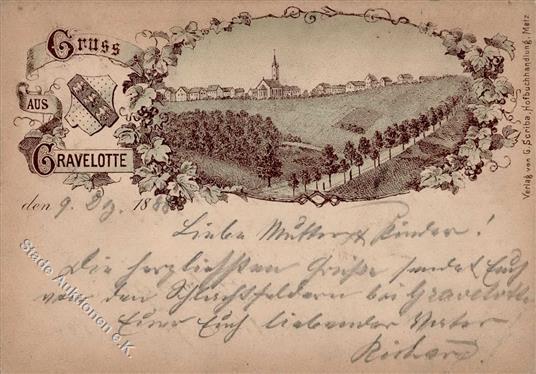 Gruss
AUS
GRAVELOTTE
Verlag von G. Scriba, Hofbuchhandlung, Metz
den 9. Dz. 1888
Liebe Mutter & Kinder!
Die herzliebsten Grüße sendet Euch
von den Schlachtfeldern bei Gravelotte
Euer Euch liebender Vater
Richard.
Stade Auktionen e.K.